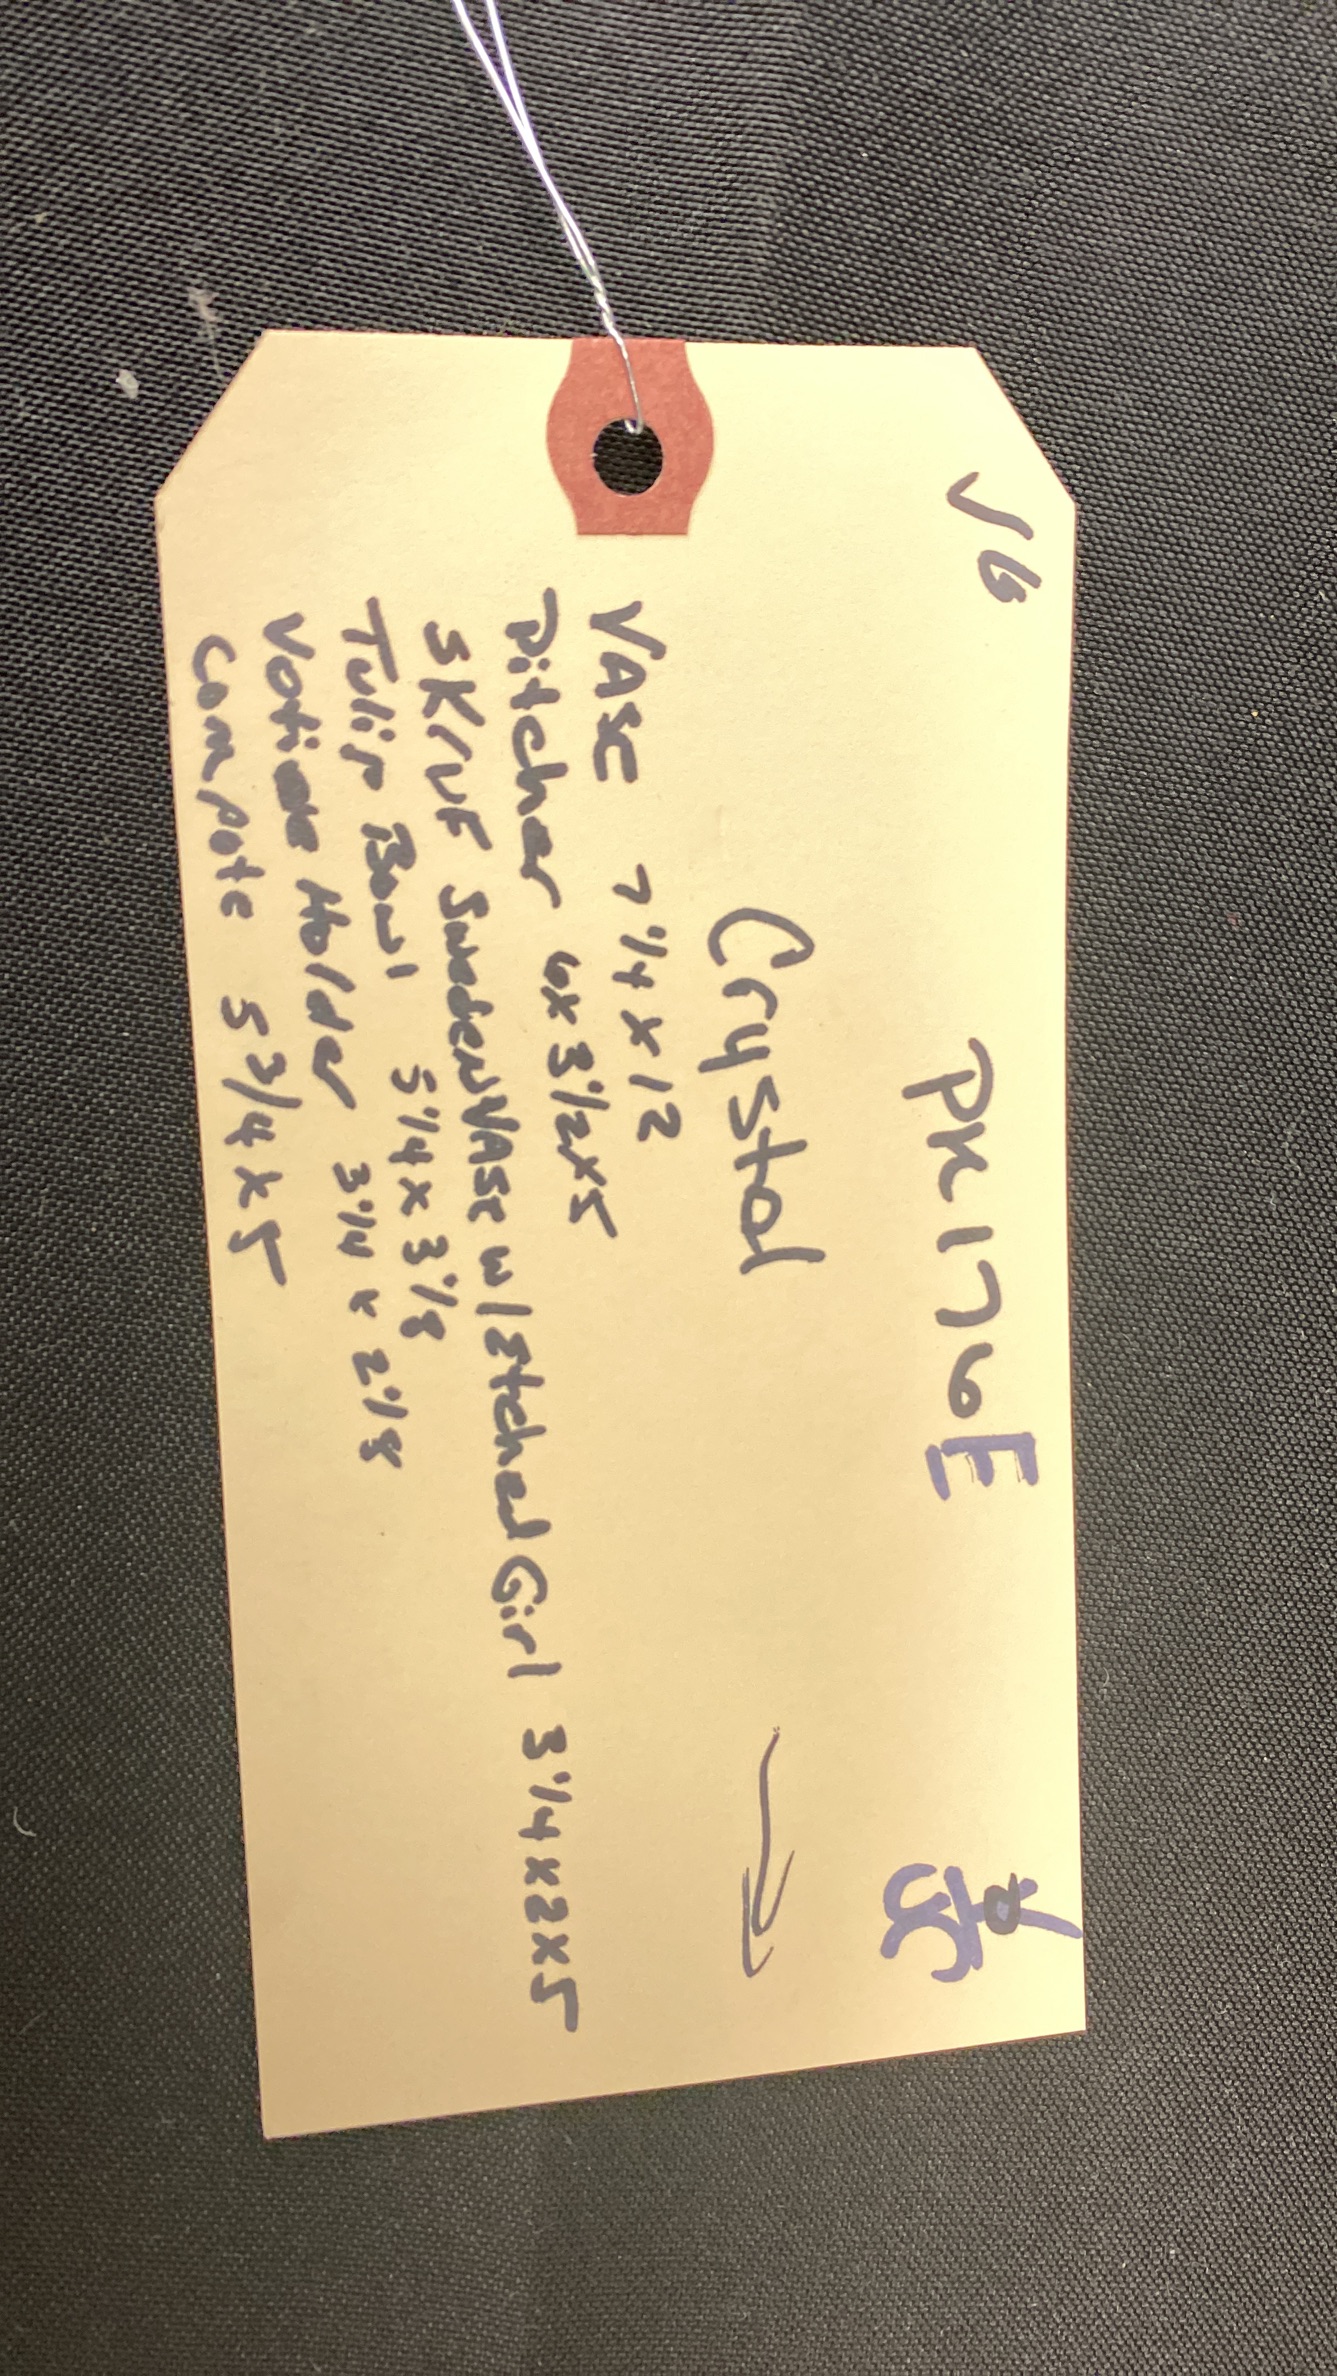 VG
PK176E
Crystal
VASE 7 1/4 x 12
Pitcher 6x 3 1/2x5
SKRUF Sweden VASE w/ Etched Girl 3 1/4 x2x5
Tulip Bowl 5 1/4 x 3 1/8
Votive Holder 3 1/4 x 2 1/8
Compote 5 3/4 x 5